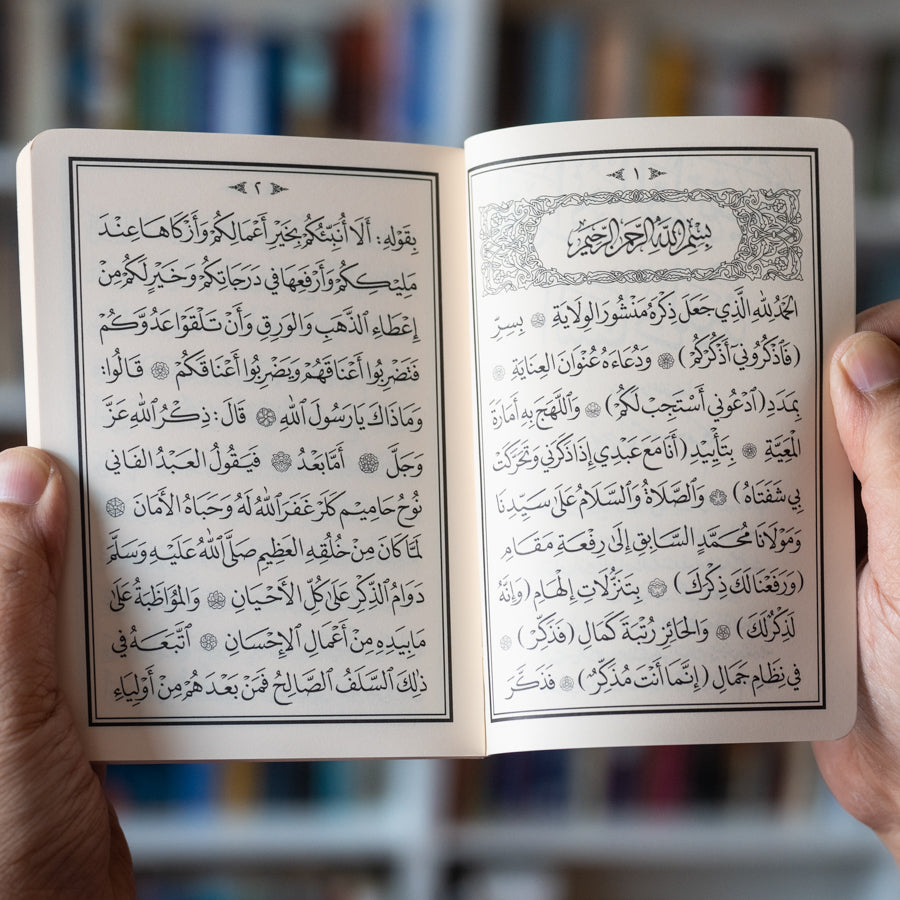 ١
بِسْمِ اللهِ الرَّحْمٰنِ الرَّحِيْمِ
الحَمْدُ للهِ الَّذِي جَعَلَ ذِكْرَهُ مَنْشُورَ الوِلَايَةِ ۞ بِسِرِّ
(فَاذْكُرُونِيٓ أَذْكُرْكُمْ) ۞ وَدُعَاءَهُ عُنْوَانَ العِنَايَةِ ۞
بِمَدَدِ (ادْعُونِي أَسْتَجِبْ لَكُمْ) ۞ وَاللَّهَجَ بِهِ أَمَارَةَ
الْمَعِيَّةِ ۞ بِتَأْيِيدِ (أَنَا مَعَ عَبْدِي إِذَا ذَكَرَنِي وَتَحَرَّكَتْ
بِي شَفَتَاهُ) ۞ وَالصَّلَاةُ وَالسَّلَامُ عَلىٰ سَيِّدِنَا
وَمَوْلَانَا مُحَمَّدٍ السَّابِقِ إِلىٰ رِفْعَةِ مَقَامِ
(وَرَفَعْنَا لَكَ ذِكْرَكَ) ۞ بِتَنَزُّلَاتِ إِلْهَامِ (وَإِنَّهُ
لَذِكْرٌ لَكَ) ۞ وَالحَائِزِ رُتْبَةَ كَمَالِ (فَذَكِّرْ) ۞
فِي نِظَامِ جَمَالِ (إِنَّمَا أَنْتَ مُذَكِّرٌ) ۞ فَذَكَرَ
٢
بِقَوْلِهِ: أَلَا أُنَبِّئُكُمْ بِخَيْرِ أَعْمَالِكُمْ وَأَزْكَاهَا عِنْدَ
مَلِيْكِكُمْ وَأَرْفَعِهَا فِي دَرَجَاتِكُمْ وَخَيْرٍ لَكُمْ مِنْ
إِعْطَاءِ الذَّهَبِ وَالوَرِقِ وَأَنْ تَلْقَوْا عَدُوَّكُمْ
فَتَضْرِبُوا أَعْنَاقَهُمْ وَيَضْرِبُوا أَعْنَاقَكُمْ ۞ قَالُوا:
وَمَا ذَاكَ يَا رَسُولَ اللهِ ۞ قَالَ: ذِكْرُ اللهِ عَزَّ
وَجَلَّ ۞ أَمَّا بَعْدُ ۞ فَيَقُولُ العَبْدُ الفَانِي
نُوْحُ حَامِيْم كَلَرْ غَفَرَ اللهُ لَهُ وَحَبَاهُ الأَمَانَ ۞
لَمَّا كَانَ مِنْ خُلُقِهِ العَظِيمِ صَلَّى اللهُ عَلَيْهِ وَسَلَّمَ
دَوَامُ الذِّكْرِ عَلىٰ كُلِّ الأَحْيَانِ ۞ وَالمُوَاظَبَةُ عَلىٰ
مَا بِيَدِهِ مِنْ أَعْمَالِ الإِحْسَانِ ۞ اتَّبَعَهُ فِي
ذٰلِكَ السَّلَفُ الصَّالِحُ فَمَنْ بَعْدَهُمْ مِنْ أَوْلِيَاءِ